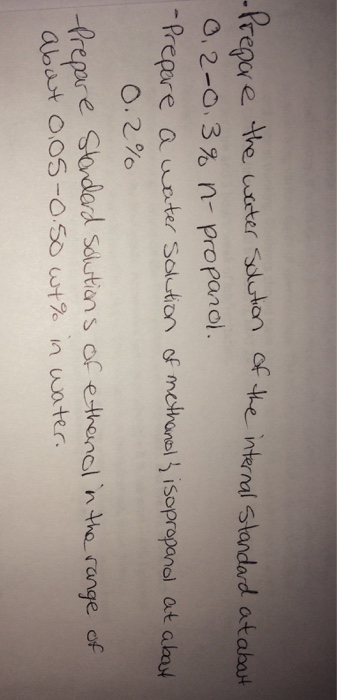 • Prepare the water solution of the internal standard at about
0.2-0.3% n-propanol.
- Prepare a water solution of methanol & isopropanol at about
0.2%
- Prepare Standard solutions of ethanol in the range of
about 0.05-0.50 wt% in water.